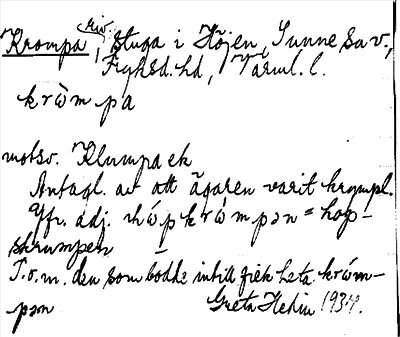 Krompa, riv. stuga i Höjen, Sunne sn.,
Fryksd. hd, Värml. l.
kròmpa
motsv. Klumpaek
Antagl. av att ägaren varit krympl.
Jfr. adj. hópkrómpən = hop-
skrumpen
T.o.m. den som bodde intill fick heta króm-
pən Greta Hedin 1934.